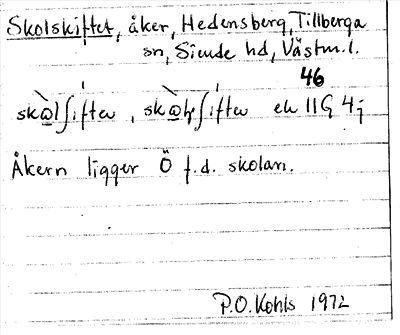 Skolskiftet, åker, Hedensberg, Tillberga
sn, Siende hd, Västm. l.
46
ek 11G 4j
Åkern ligger Ö f.d. skolan.
P.O. Kohls 1972